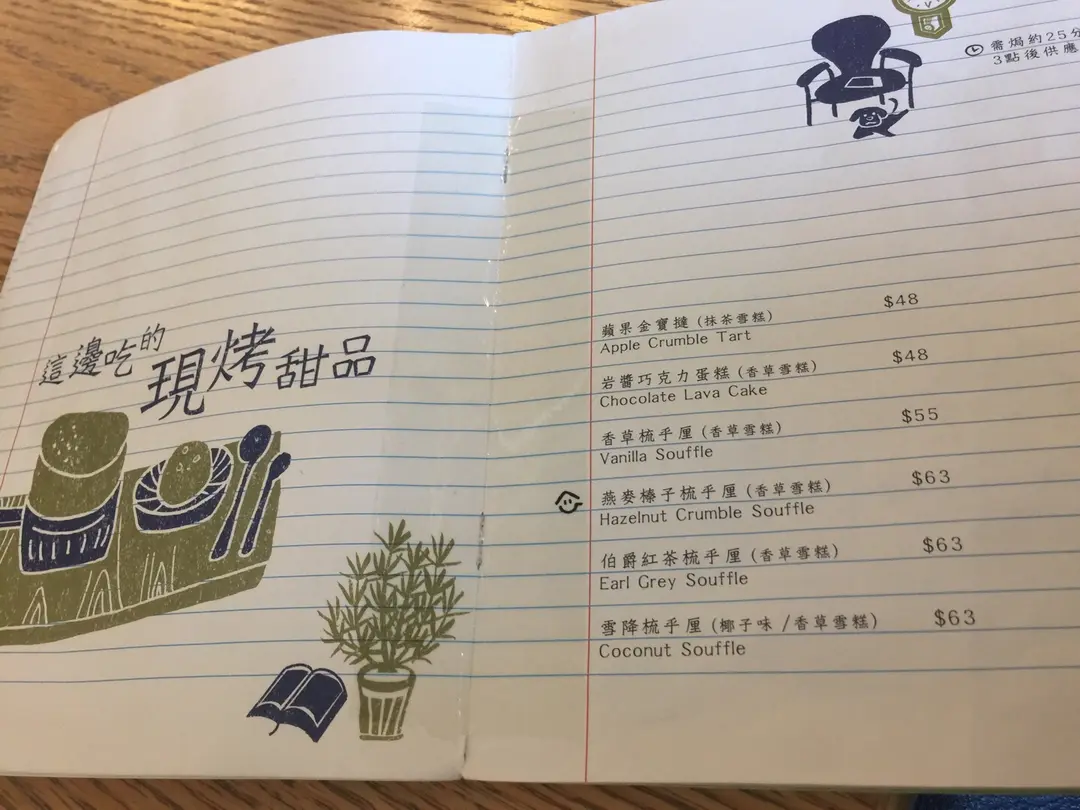 這邊吃的
現烤甜品
需焗約25分
3點後供應
蘋果金寶撻 (抹茶雪糕) $48
Apple Crumble Tart
岩醬巧克力蛋糕 (香草雪糕) $48
Chocolate Lava Cake
香草梳乎厘 (香草雪糕) $55
Vanilla Souffle
燕麥榛子梳乎厘 (香草雪糕) $63
Hazelnut Crumble Souffle
伯爵紅茶梳乎厘 (香草雪糕) $63
Earl Grey Souffle
雪降梳乎厘 (椰子味 / 香草雪糕) $63
Coconut Souffle